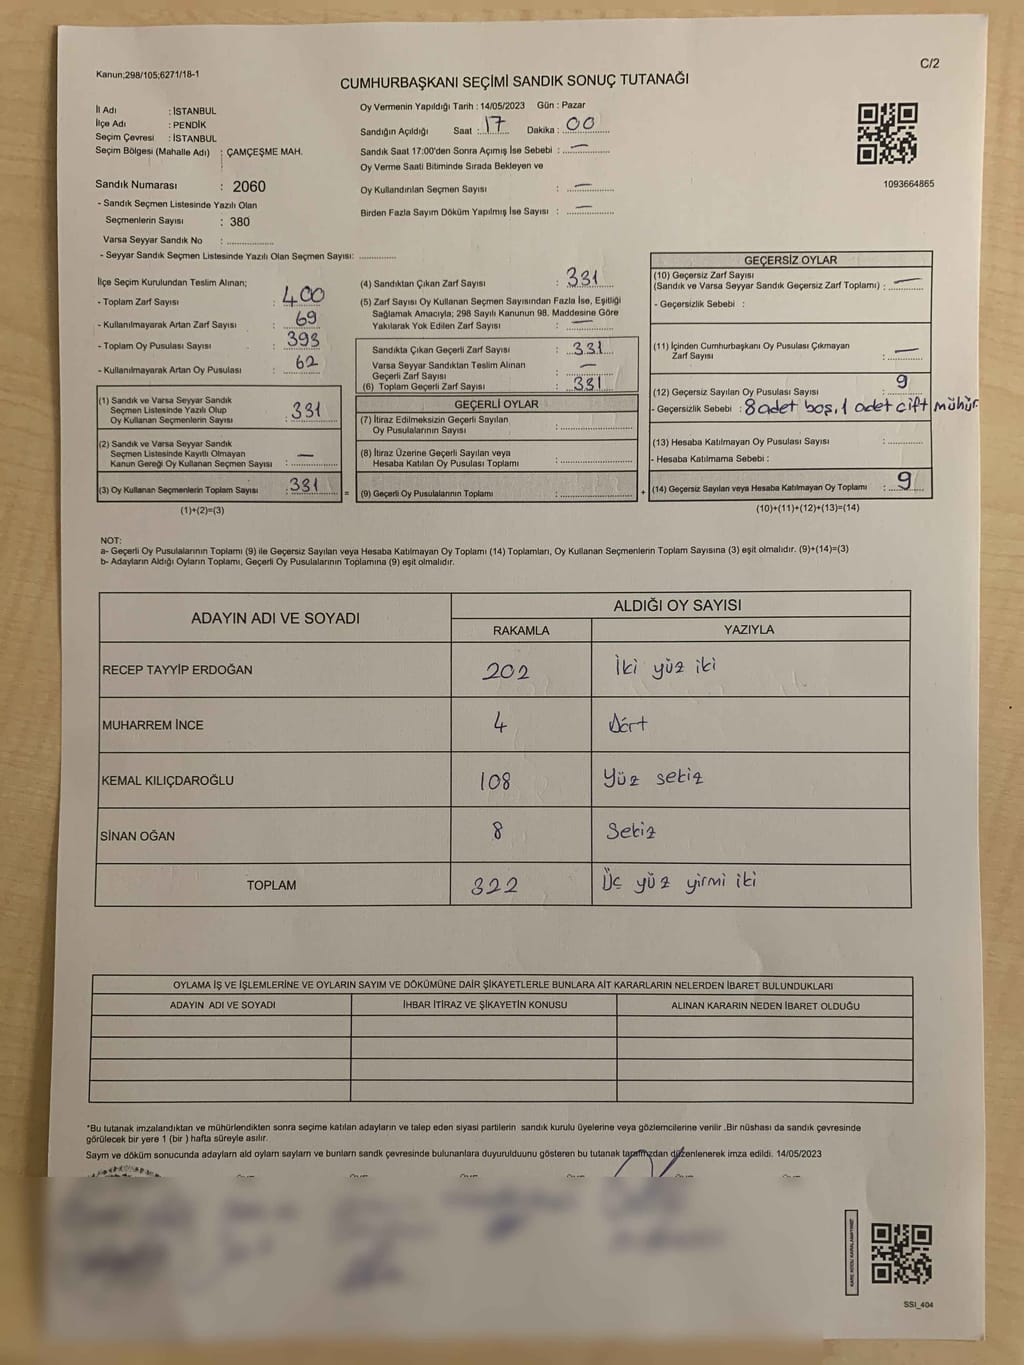 Kanun;298/105;6271/18-1
C/2
CUMHURBAŞKANI SEÇİMİ SANDIK SONUÇ TUTANAĞI
İl Adı : İSTANBUL
İlçe Adı : PENDİK
Seçim Çevresi : İSTANBUL
Seçim Bölgesi (Mahalle Adı) : ÇAMÇEŞME MAH.
Sandık Numarası : 2060
- Sandık Seçmen Listesinde Yazılı Olan
Seçmenlerin Sayısı : 380
Varsa Seyyar Sandık No : ..............
- Seyyar Sandık Seçmen Listesinde Yazılı Olan Seçmen Sayısı: ..............
Oy Vermenin Yapıldığı Tarih : 14/05/2023 Gün : Pazar
Sandığın Açıldığı Saat : 17 Dakika : 00
Sandık Saat 17:00'den Sonra Açımış İse Sebebi : —
Oy Verme Saati Bitiminde Sırada Bekleyen ve
Oy Kullandırılan Seçmen Sayısı : —
Birden Fazla Sayım Döküm Yapılmış İse Sayısı : —
1093664865
İlçe Seçim Kurulundan Teslim Alınan;
- Toplam Zarf Sayısı : 400
- Kullanılmayarak Artan Zarf Sayısı : 69
- Toplam Oy Pusulası Sayısı : 393
- Kullanılmayarak Artan Oy Pusulası : 62
(1) Sandık ve Varsa Seyyar Sandık
Seçmen Listesinde Yazılı Olup
Oy Kullanan Seçmenlerin Sayısı : 331
(2) Sandık ve Varsa Seyyar Sandık
Seçmen Listesinde Kayıtlı Olmayan
Kanun Gereği Oy Kullanan Seçmen Sayısı : —
(3) Oy Kullanan Seçmenlerin Toplam Sayısı : 331 =
(1)+(2)=(3)
(4) Sandıktan Çıkan Zarf Sayısı : 331
(5) Zarf Sayısı Oy Kullanan Seçmen Sayısından Fazla İse, Eşitliği
Sağlamak Amacıyla; 298 Sayılı Kanunun 98. Maddesine Göre
Yakılarak Yok Edilen Zarf Sayısı : —
Sandıkta Çıkan Geçerli Zarf Sayısı : 331
Varsa Seyyar Sandıktan Teslim Alınan
Geçerli Zarf Sayısı : —
(6) Toplam Geçerli Zarf Sayısı : 331
GEÇERLİ OYLAR
(7) İtiraz Edilmeksizin Geçerli Sayılan
Oy Pusulalarının Sayısı : ..............
(8) İtiraz Üzerine Geçerli Sayılan veya
Hesaba Katılan Oy Pusulası Toplamı : ..............
(9) Geçerli Oy Pusulalarının Toplamı : .............. +
GEÇERSİZ OYLAR
(10) Geçersiz Zarf Sayısı
(Sandık ve Varsa Seyyar Sandık Geçersiz Zarf Toplamı) : —
- Geçersizlik Sebebi :
(11) İçinden Cumhurbaşkanı Oy Pusulası Çıkmayan
Zarf Sayısı : —
(12) Geçersiz Sayılan Oy Pusulası Sayısı : 9
- Geçersizlik Sebebi : 8 adet boş, 1 adet çift mühür
(13) Hesaba Katılmayan Oy Pusulası Sayısı : ..............
- Hesaba Katılmama Sebebi :
(14) Geçersiz Sayılan veya Hesaba Katılmayan Oy Toplamı : 9
(10)+(11)+(12)+(13)=(14)
NOT:
a- Geçerli Oy Pusulalarının Toplamı (9) ile Geçersiz Sayılan veya Hesaba Katılmayan Oy Toplamı (14) Toplamları, Oy Kullanan Seçmenlerin Toplam Sayısına (3) eşit olmalıdır. (9)+(14)=(3)
b- Adayların Aldığı Oyların Toplamı, Geçerli Oy Pusulalarının Toplamına (9) eşit olmalıdır.
ADAYIN ADI VE SOYADI ALDIĞI OY SAYISI
RAKAMLA YAZIYLA
RECEP TAYYİP ERDOĞAN 202 İki yüz iki
MUHARREM İNCE 4 Dört
KEMAL KILIÇDAROĞLU 108 Yüz sekiz
SİNAN OĞAN 8 Sekiz
TOPLAM 322 Üç yüz yirmi iki
OYLAMA İŞ VE İŞLEMLERİNE VE OYLARIN SAYIM VE DÖKÜMÜNE DAİR ŞİKAYETLERLE BUNLARA AİT KARARLARIN NELERDEN İBARET BULUNDUKLARI
ADAYIN ADI VE SOYADI İHBAR İTİRAZ VE ŞİKAYETİN KONUSU ALINAN KARARIN NEDEN İBARET OLDUĞU
*Bu tutanak imzalandıktan ve mühürlendikten sonra seçime katılan adayların ve talep eden siyasi partilerin sandık kurulu üyelerine veya gözlemcilerine verilir .Bir nüshası da sandık çevresinde
görülecek bir yere 1 (bir ) hafta süreyle asılır.
Saym ve döküm sonucunda adaylarn ald oylarn saylarn ve bunlarn sandk çevresinde bulunanlara duyurulduunu gösteren bu tutanak tarafmzdan düzenlenerek imza edildi. 14/05/2023
KARE KODU KARALAMAYINIZ
SSI_404